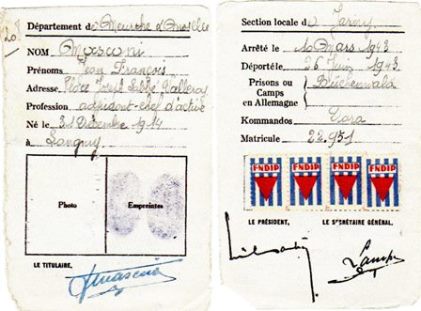 Département de Meurthe et Moselle
NOM Masconi
Prénoms Jean François
Adresse, Place Joseph Labbé
Profession adjudant-chef d'active
Né le 31 Décembre 1914
à Longwy
Photo
Empreintes
LE TITULAIRE,
Section locale de Jarny
Arrêté le 10 Mars 1943
Déporté le 26 Juin 1943
Prisons ou Camps en Allemagne Buchenwald
Kommandos Dora
Matricule 22.951
FNDIP FNDIP FNDIP FNDIP
LE PRÉSIDENT, LE SECRÉTAIRE GÉNÉRAL,